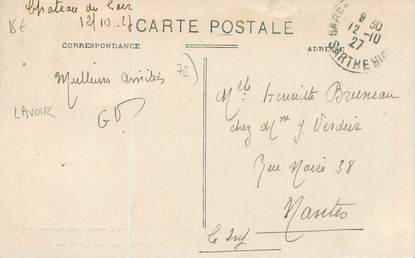 Chateau du Loir
12/10.27
CARTE POSTALE
CORRESPONDANCE
ADRESSE
8 30
12-10
27
SARTHE
Meilleurs amitiés
72
LAVOIR
GD.
Mlle Henriette Bruneau
chez Mme Y Verdier
Rue Noire 38
Nantes
Le Inf